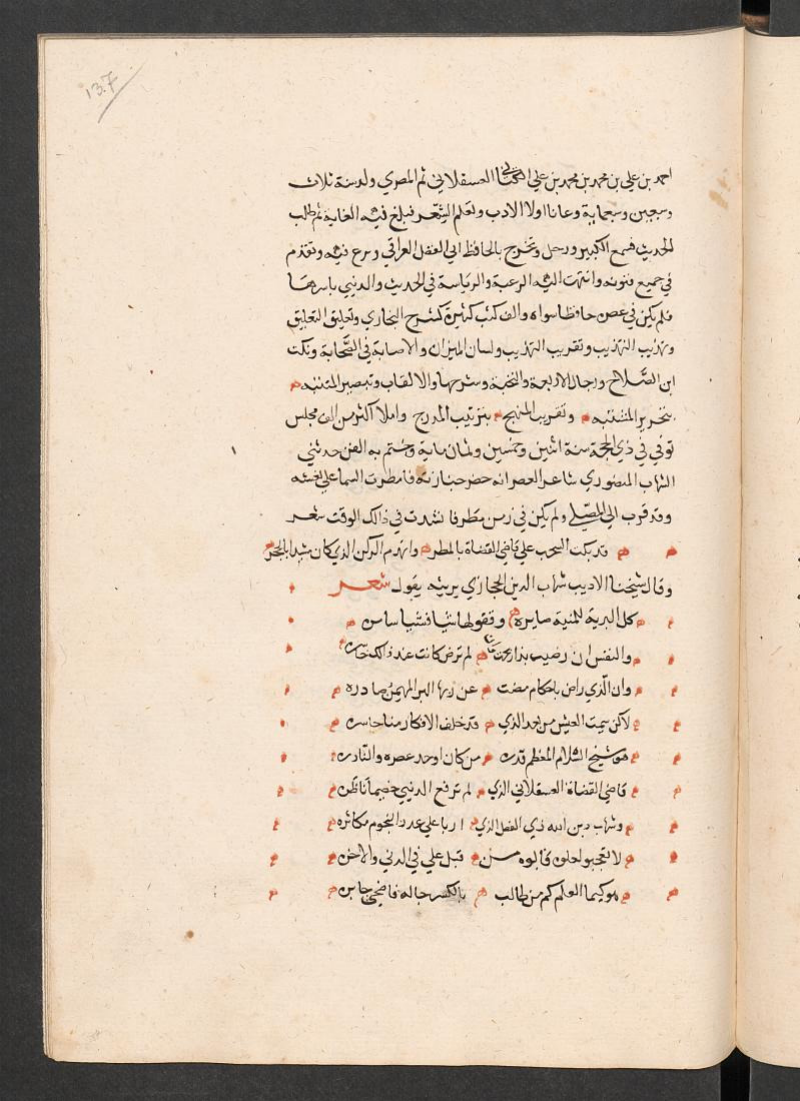 137
احمد بن علي بن محمد بن محمد بن علي الكناني العسقلاني ثم المصري ولد سنة ثلاث
وسبعين وسبعماية وعانا اولا الادب وتعلم الشعر فبلغ فيه الغاية ثم طلب
الحديث فسمع الكثير ورحل وتخرج بالحافظ ابي الفضل العراقي وبرع فيه وتقدم
في جميع فنونه وانتهت اليه الرحبة والرياسة في الحديث والدنيي باسرها
فلم يكن في عصره حافظا سواه والف كتب كثيرة كشرح البخاري وتعليق التعليق
وتهذيب التهذيب وتقريب التهذيب ولسان الميزان والاصابة في الصحابة ونكت
ابن الصلاح ورجال الاربعة والنخبة وشرحها والالقاب وتبصير المنتبه
بتحرير المشتبه وتقريب المنهج بترتيب المدرج واملا اكثر من الف مجلس
توفي في ذي الحجة سنة اثنين وخمسين وثمان ماية وختم به الفن حدثني
الشهاب المنصوري شاعر العصر انه حضر جنازته فامطرت السما علي نعشه
وقد قرب الي المصلي ولم يكن في زمن مطر فانشدت في ذالك الوقت شعر
قد بكت السحب علي قاضي القضاة بالمطر وانهدم الركن الذي كان مشيدا بالحجر
وقال شيخنا الاديب شهاب الدين الحجازي يرثيه يقول شعر
كل البرية للمنية صايره وقفولها شيا فشيا سايره
والنفس ان رضيت بذا ربحت وان لم ترض كانت عند ذالك خاسره
وان الذي راض باحكام مضت عن ربها البر المهيمن صادره
لاكن سيمت العيش من بعد الذي قد خلف الافكار منا حايره
هو شيخ الاسلام المعظم قدره من كان اوحد عصره والنادره
قاضي القضاة العسقلاني الذي لم ترفع الدنيي خصيما ناظره
وشهاب دين الله ذي الفضل الذي اربا علي عدد النجوم مكاثره
لا تعجبو لعلوه فابوه من قبل علي في الدني والاخره
هو كيميا العلم كم من طالب بالكسر جا له فاضحي جابره